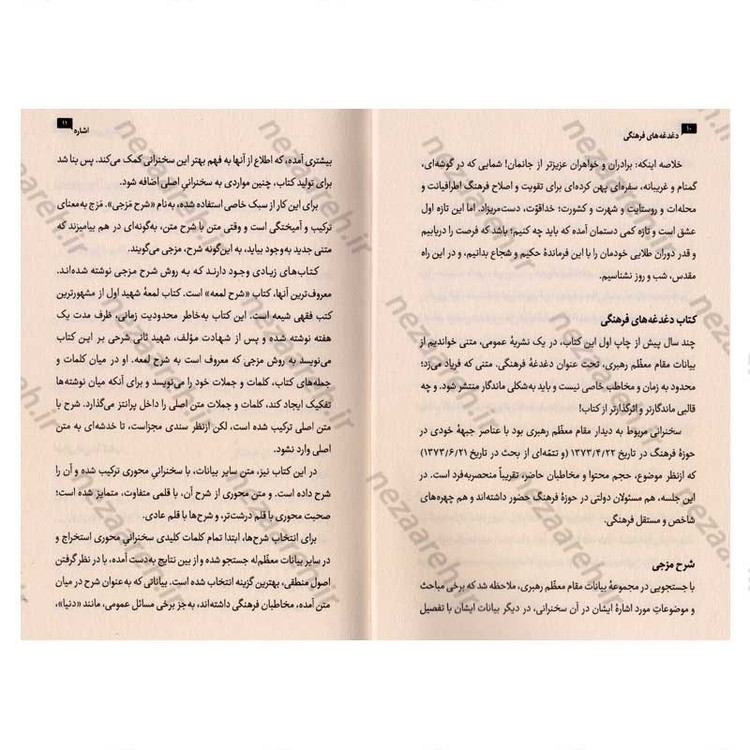 ۱۰
دغدغه‌های فرهنگی
خلاصه اینکه: برادران و خواهران عزیزتر از جانمان! شمایی که در گوشه‌ای،
گمنام و غریبانه، سفره‌ای پهن کرده‌ای برای تقویت و اصلاح فرهنگ اطرافیانت و
محله‌ات و روستایت و شهرت و کشورت؛ خداقوّت، دست‌مریزاد. اما این تازه اول
عشق است و تازه کمی دستمان آمده که باید چه کنیم؛ باشد که فرصت را دریابیم
و قدر دوران طلایی خودمان را با این فرماندهٔ حکیم و شجاع بدانیم، و در این راه
مقدس، شب و روز نشناسیم.
کتاب دغدغه‌های فرهنگی
چند سال پیش از چاپ اول این کتاب، در یک نشریهٔ عمومی، متنی خواندیم از
بیانات مقام معظّم رهبری، تحت عنوان دغدغهٔ فرهنگی. متنی که فریاد می‌زد؛
محدود به زمان و مخاطب خاصی نیست و باید به‌شکلی ماندگار منتشر شود. و چه
قالبی ماندگارتر و اثرگذارتر از کتاب!
سخنرانی مربوط به دیدار مقام معظّم رهبری بود با عناصر جبههٔ خودی در
حوزهٔ فرهنگ در تاریخ ۱۳۷۳/۴/۲۲ (و تتمّه‌ای از بحث در تاریخ ۱۳۷۳/۶/۲۱)
که ازنظر موضوع، حجم محتوا و مخاطبان حاضر، تقریباً منحصربه‌فرد است. در
این جلسه، هم مسئولان دولتی در حوزهٔ فرهنگ حضور داشته‌اند و هم چهره‌های
شاخص و مستقل فرهنگی.
شرح مزجی
با جستجویی در مجموعهٔ بیانات مقام معظّم رهبری، ملاحظه شد که برخی مباحث
و موضوعات مورد اشارهٔ ایشان در آن سخنرانی، در دیگر بیانات ایشان با تفصیل
۱۱
اشاره
بیشتری آمده، که اطلاع از آنها به فهم بهتر این سخنرانی کمک می‌کند. پس بنا شد
برای تولید کتاب، چنین مواردی به سخنرانیِ اصلی اضافه شود.
برای این کار از سبک خاصی استفاده شده، به‌نام «شرح مَزجی». مَزج به‌معنای
ترکیب و آمیختگی است و وقتی متن با شرح متن، به‌گونه‌ای در هم بیامیزند که
متنی جدید به‌وجود بیاید، به این‌گونه شرح، مزجی می‌گویند.
کتاب‌های زیادی وجود دارند که به روش شرح مزجی نوشته شده‌اند.
معروف‌ترین آنها، کتاب «شرح لمعه» است. کتاب لمعهٔ شهید اول از مشهورترین
کتب فقهی شیعه است. این کتاب به‌خاطر محدودیت زمانی، ظرف مدت یک
هفته نوشته شده و پس از شهادت مؤلف، شهید ثانی شرحی بر این کتاب
می‌نویسد به روش مزجی که معروف است به شرح لمعه. او در میان کلمات و
جمله‌های کتاب، کلمات و جملات خود را می‌نویسد و برای آنکه میان نوشته‌ها
تفکیک ایجاد کند، کلمات و جملات متن اصلی را داخل پرانتز می‌گذارد. شرح با
متن اصلی ترکیب شده است، لکن ازنظر سندی مجزاست، تا خدشه‌ای به متن
اصلی وارد نشود.
در این کتاب نیز، متن سایر بیانات، با سخنرانیِ محوری ترکیب شده و آن را
شرح داده است. و متن محوری از شرح آن، با قلمی متفاوت، متمایز شده است؛
صحبت محوری با قلم درشت‌تر، و شرح‌ها با قلم عادی.
برای انتخاب شرح‌ها، ابتدا تمام کلمات کلیدی سخنرانیِ محوری استخراج و
در سایر بیانات معظّم‌له جستجو شده و از بین نتایج به‌دست آمده، با در نظر گرفتن
اصول منطقی، بهترین گزینه انتخاب شده است. بیاناتی که به‌عنوان شرح در میان
متن آمده، مخاطبان فرهنگی داشته‌اند، به‌جز برخی مسائل عمومی، مانند «دنیا»،
nezaareh.ir